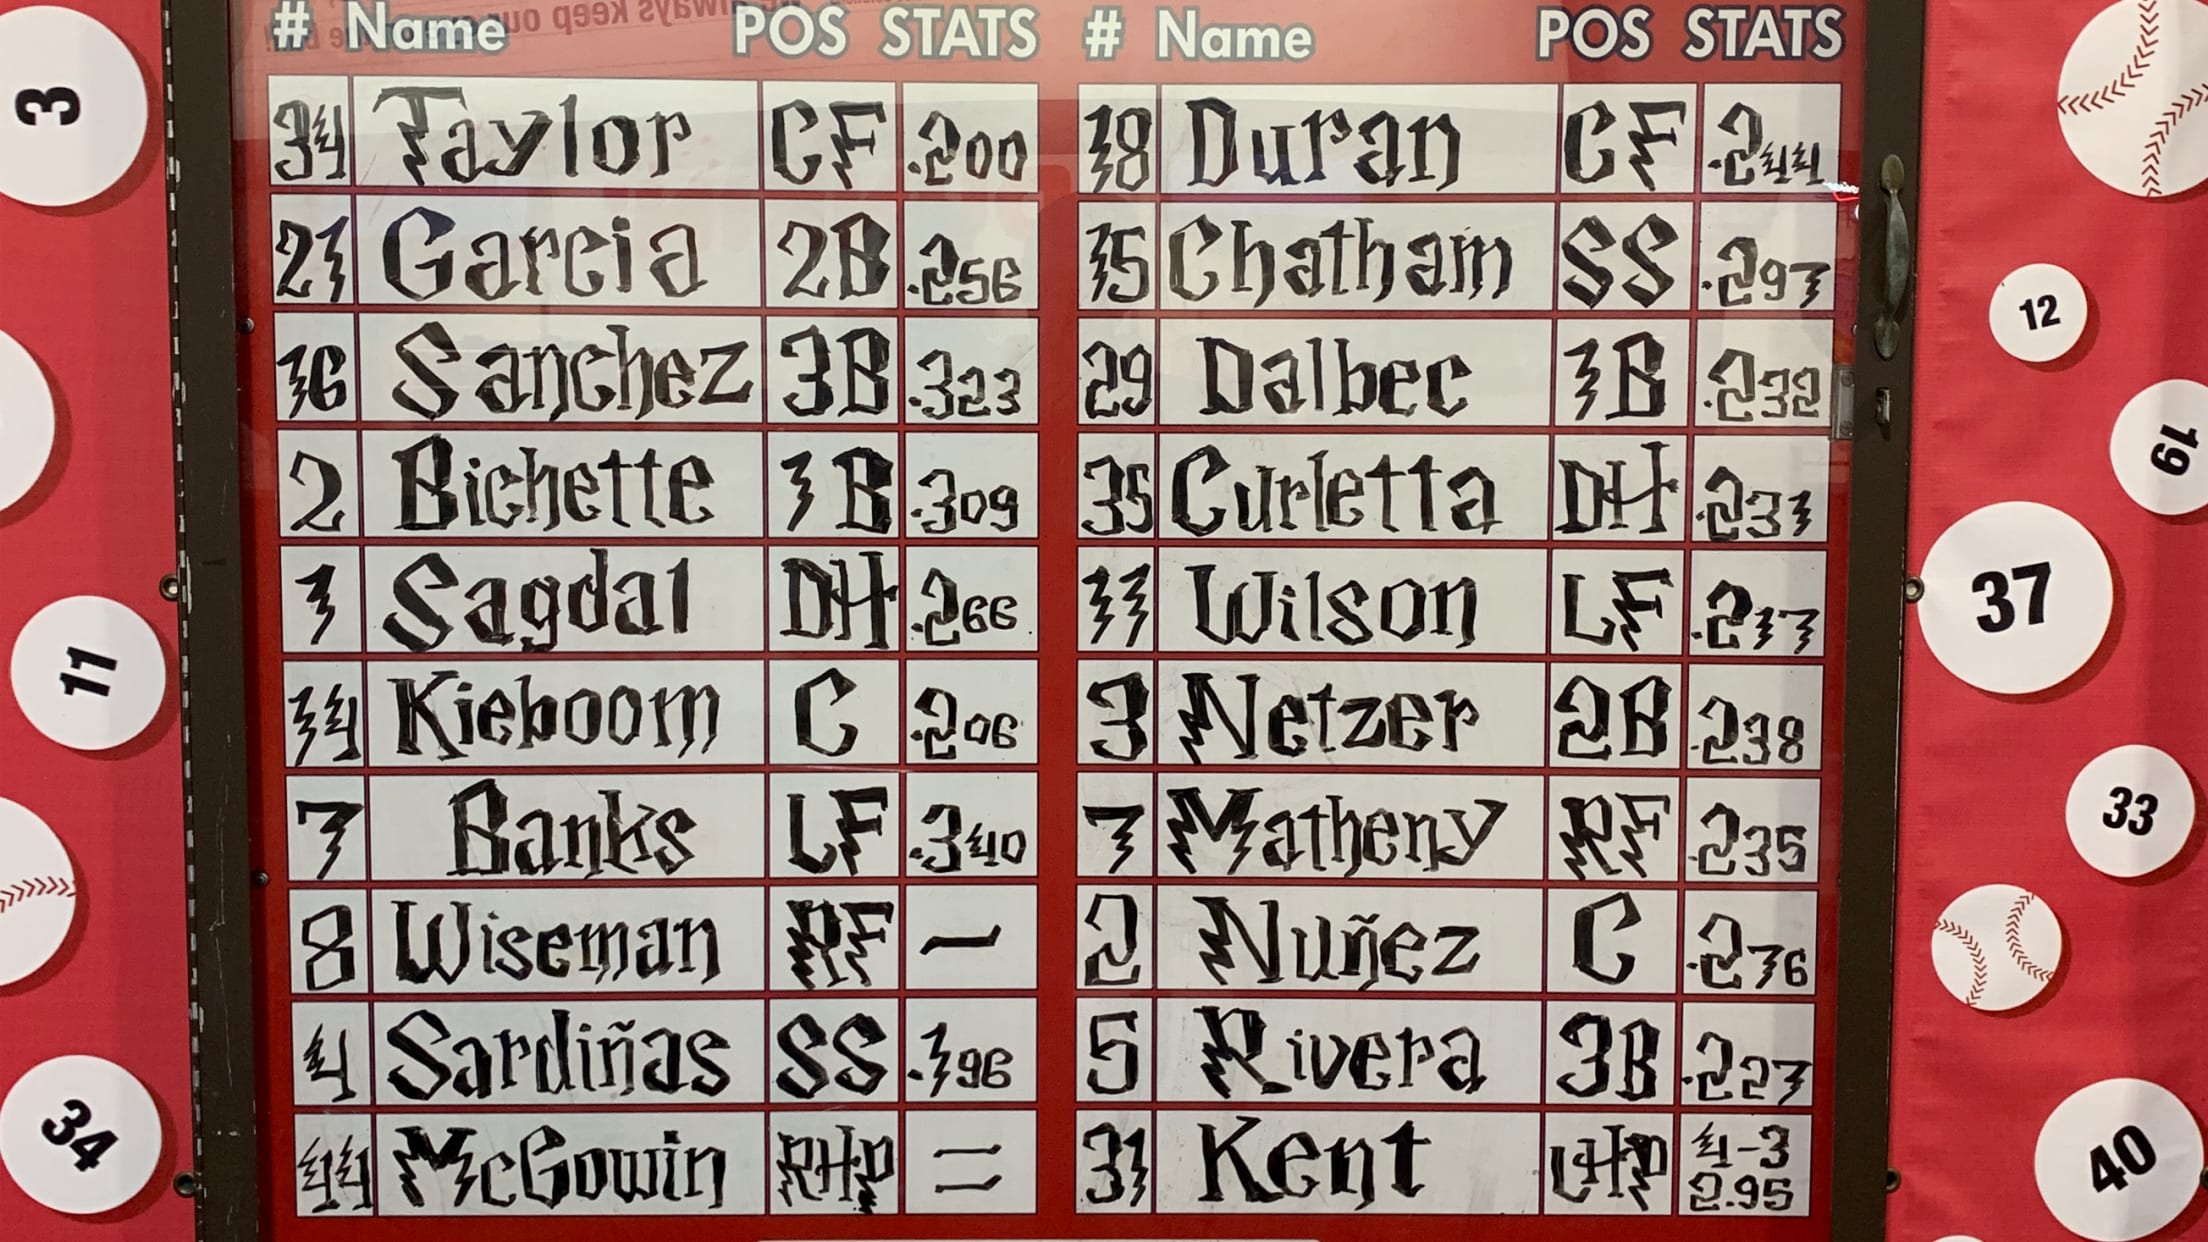 # Name POS STATS # Name POS STATS
34 Taylor CF .200 18 Duran CF .244
21 Garcia 2B .256 15 Chatham SS .297
16 Sanchez 3B .323 29 Dalbec 1B .232
2 Bichette 1B .309 35 Curletta DH .231
1 Sagdal DH .266 11 Wilson LF .217
14 Kieboom C .206 3 Netzer 2B .238
7 Banks LF .340 7 Matheny RF .235
8 Wiseman RF — 2 Nuñez C .276
4 Sardiñas SS .196 5 Rivera 3B .227
44 McGowin RHP — 31 Kent LHP 4-3
— 2.95
3
11
34
12
19
37
33
40
always keep our